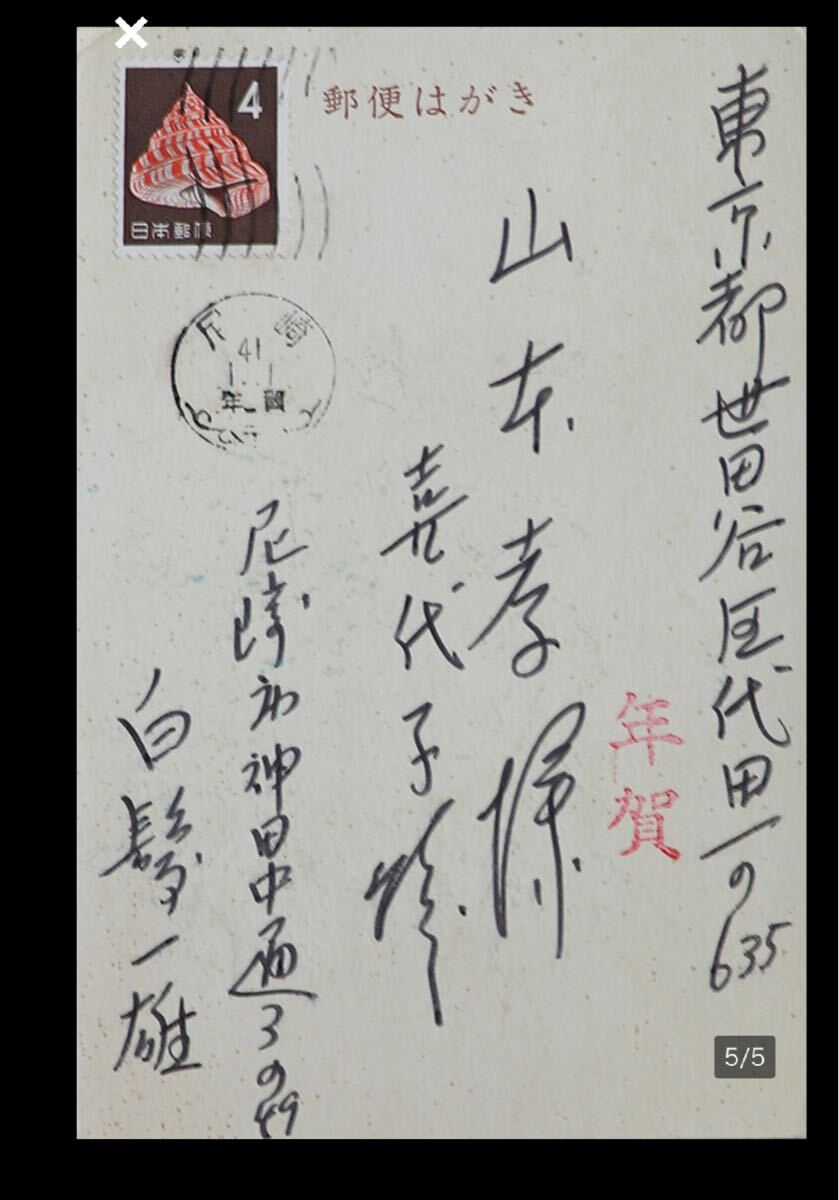 東京都世田谷区代田一の635
年賀
山本孝様
喜代子様
尼崎市神田中通3の49
白髪一雄
郵便はがき
4
日本郵便
尼崎
41
1.1
年賀
5/5